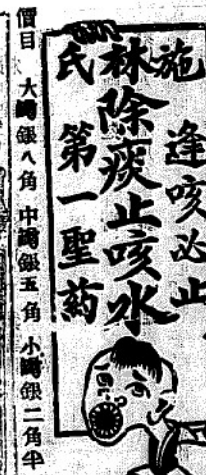 施 逢咳必止
林除痰止咳水
氏 第一聖藥
價目 大罇銀八角 中罇銀五角 小罇銀二角半